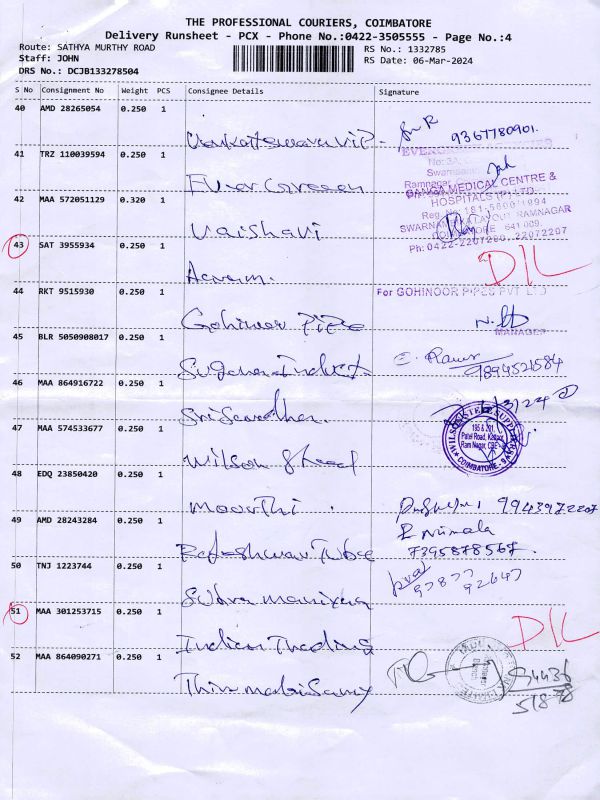 THE PROFESSIONAL COURIERS, COIMBATORE
Delivery Runsheet - PCX - Phone No.:0422-3505555 - Page No.:4
Route: SATHYA MURTHY ROAD
RS No.: 1332785
Staff: JOHN
RS Date: 06-Mar-2024
DRS No.: DCJB133278504
S No Consignment No Weight PCS Consignee Details Signature
40 AMD 28265054 0.250 1
9367780901.
41 TRZ 110039594 0.250 1
Ever Green
42 MAA 572051129 0.320 1
Vaishavi
MEDICAL CENTRE &
HOSPITALS (P) LTD.
SWARNAMBIKA LAYOUT, RAMNAGAR
COIMBATORE 641 009.
Ph: 0422-2207200, 22072207
43 SAT 3955934 0.250 1
DIL
44 RKT 9515930 0.250 1
For GOHINOOR PIPES PVT LTD
Gohinoor Pipe
MANAGER
45 BLR 5050908017 0.250 1
9894521584
46 MAA 864916722 0.250 1
47 MAA 574533677 0.250 1
195 & 201,
Patel Road, Kattoor,
Ram Nagar, CBE
COIMBATORE
Wilson Steel
48 EDQ 23850420 0.250 1
Moorthi
9943972207
49 AMD 28243284 0.250 1
R Nirmala
7395878567.
Rajeshwari Tube
50 TNJ 1223744 0.250 1
97877 92647
51 MAA 301253715 0.250 1
DIL
Indian Trading
52 MAA 864090271 0.250 1
94436
51878